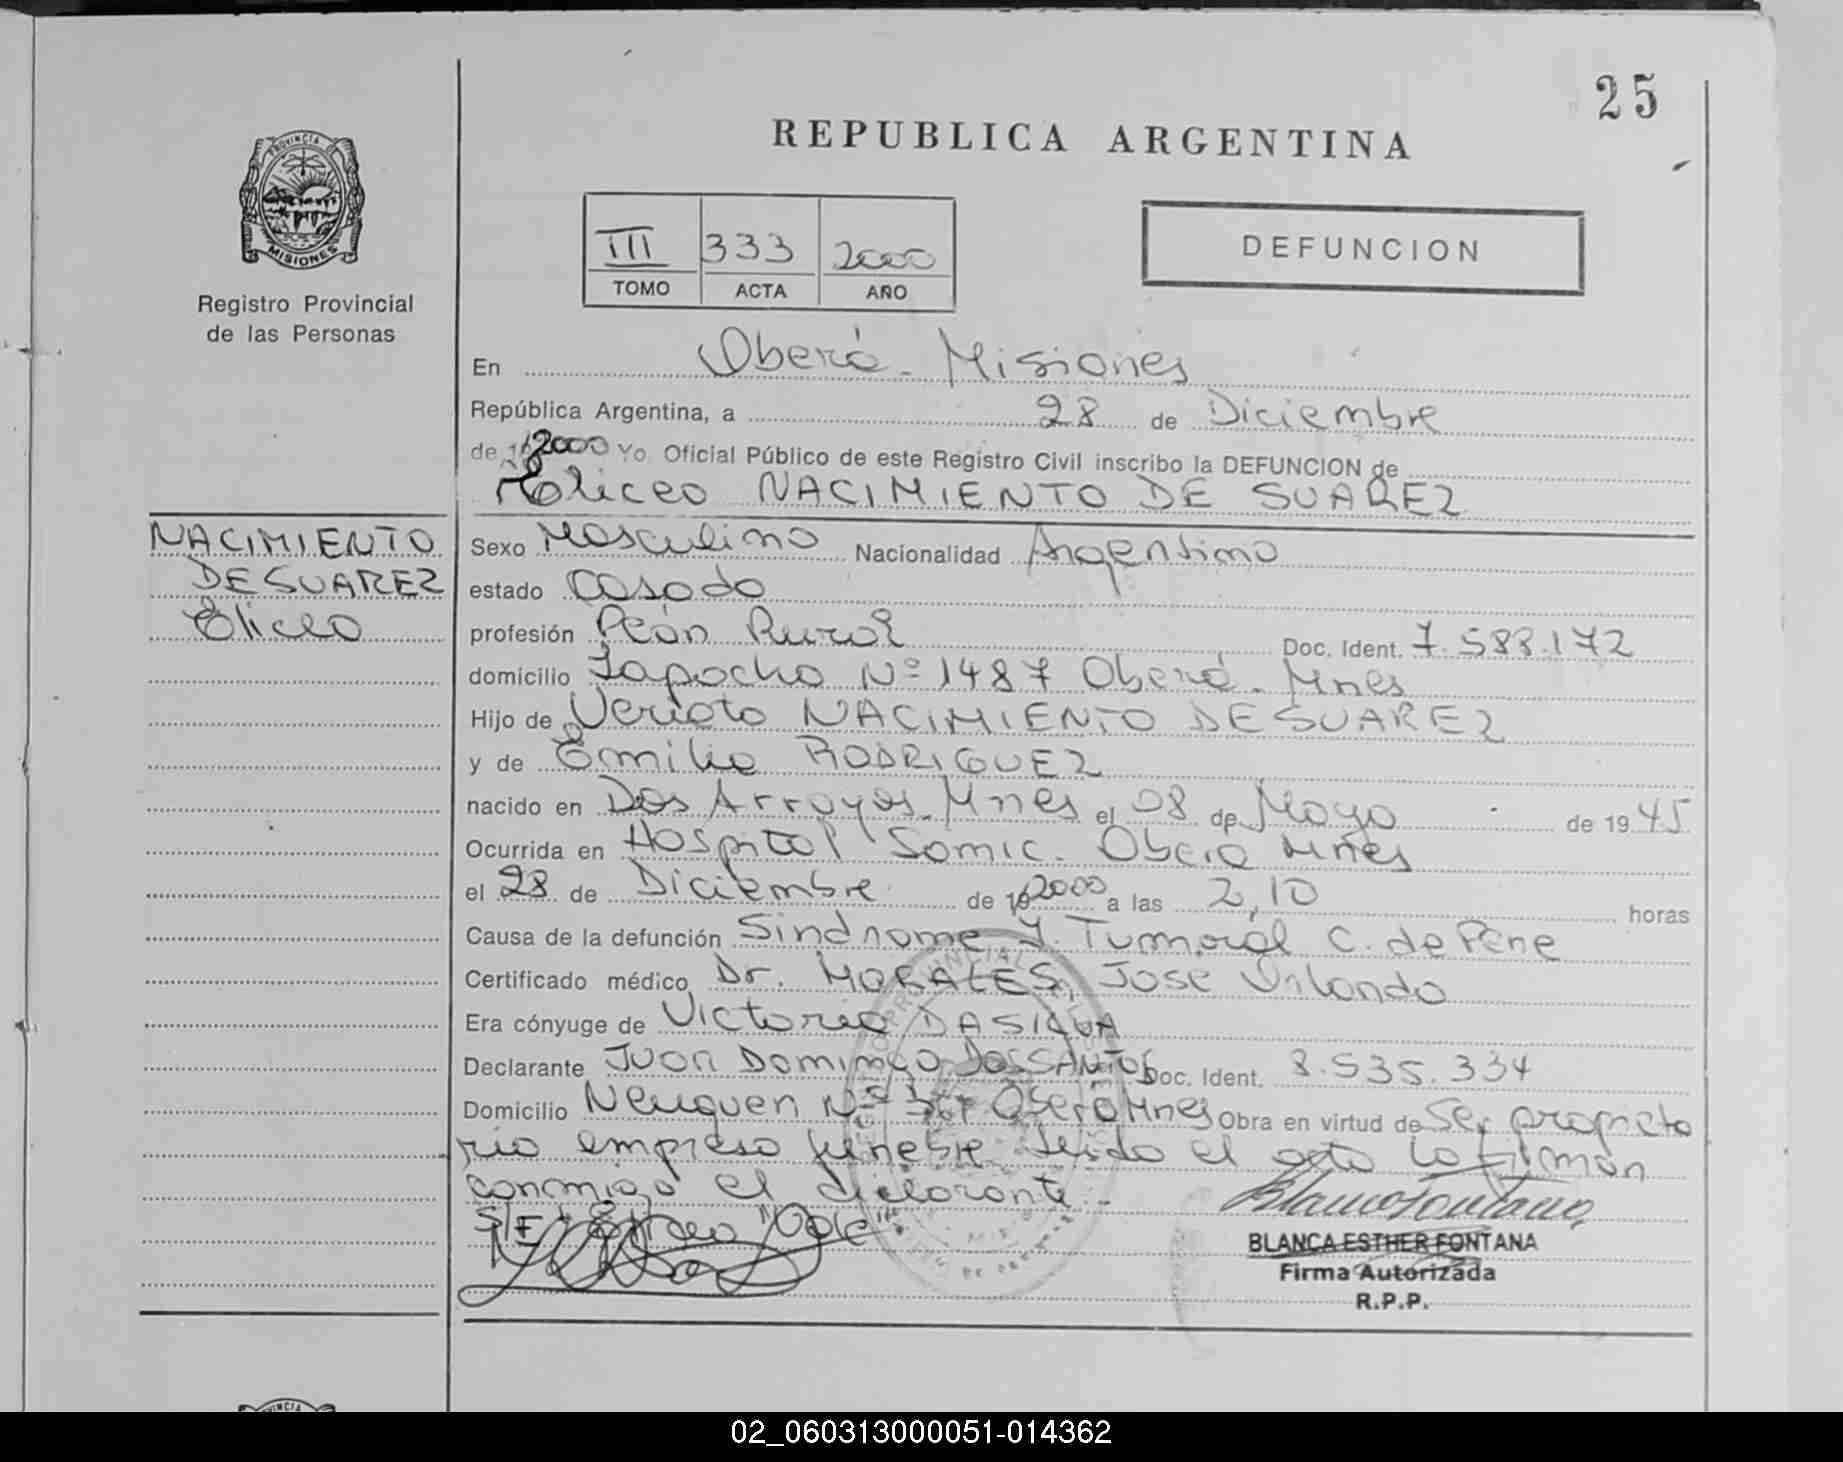 25
REPUBLICA ARGENTINA
PROVINCIA
MISIONES
Registro Provincial
de las Personas
III 333 2000
TOMO ACTA AÑO
DEFUNCION
En Oberá - Misiones
República Argentina, a 28 de Diciembre
de 2000 Yo Oficial Público de este Registro Civil inscribo la DEFUNCION de
Eliceo NACIMIENTO DE SUAREZ
NACIMIENTO
DE SUAREZ
Eliceo
Sexo Masculino Nacionalidad Argentino
estado Casado
profesión Peón Rural Doc. Ident. 7.588.172
domicilio Nº 1487 Oberá - Mnes
Hijo de NACIMIENTO DE SUAREZ
y de Emilia RODRIGUEZ
nacido en Dos Arroyos - Mnes el 08 de Mayo de 1945
Ocurrida en Hospital Samic. Oberá Mnes
el 28 de Diciembre de 2000 a las 2,10 horas
Causa de la defunción Sindrome Tumoral C. de Pene
Certificado médico Dr. MORALES, Jose Orlando
Era cónyuge de Victoria DASILVA
Declarante Juan Domingo DOSSANTOS Doc. Ident. 8.535.334
Domicilio Neuquen Nº Oberá Mnes Obra en virtud de Ser propieta
rio empresa funebre leida el acta la firman
conmigo el declarante.-
S/E "Vale"
BLANCA ESTHER FONTANA
Firma Autorizada
R.P.P.
02_060313000051-014362